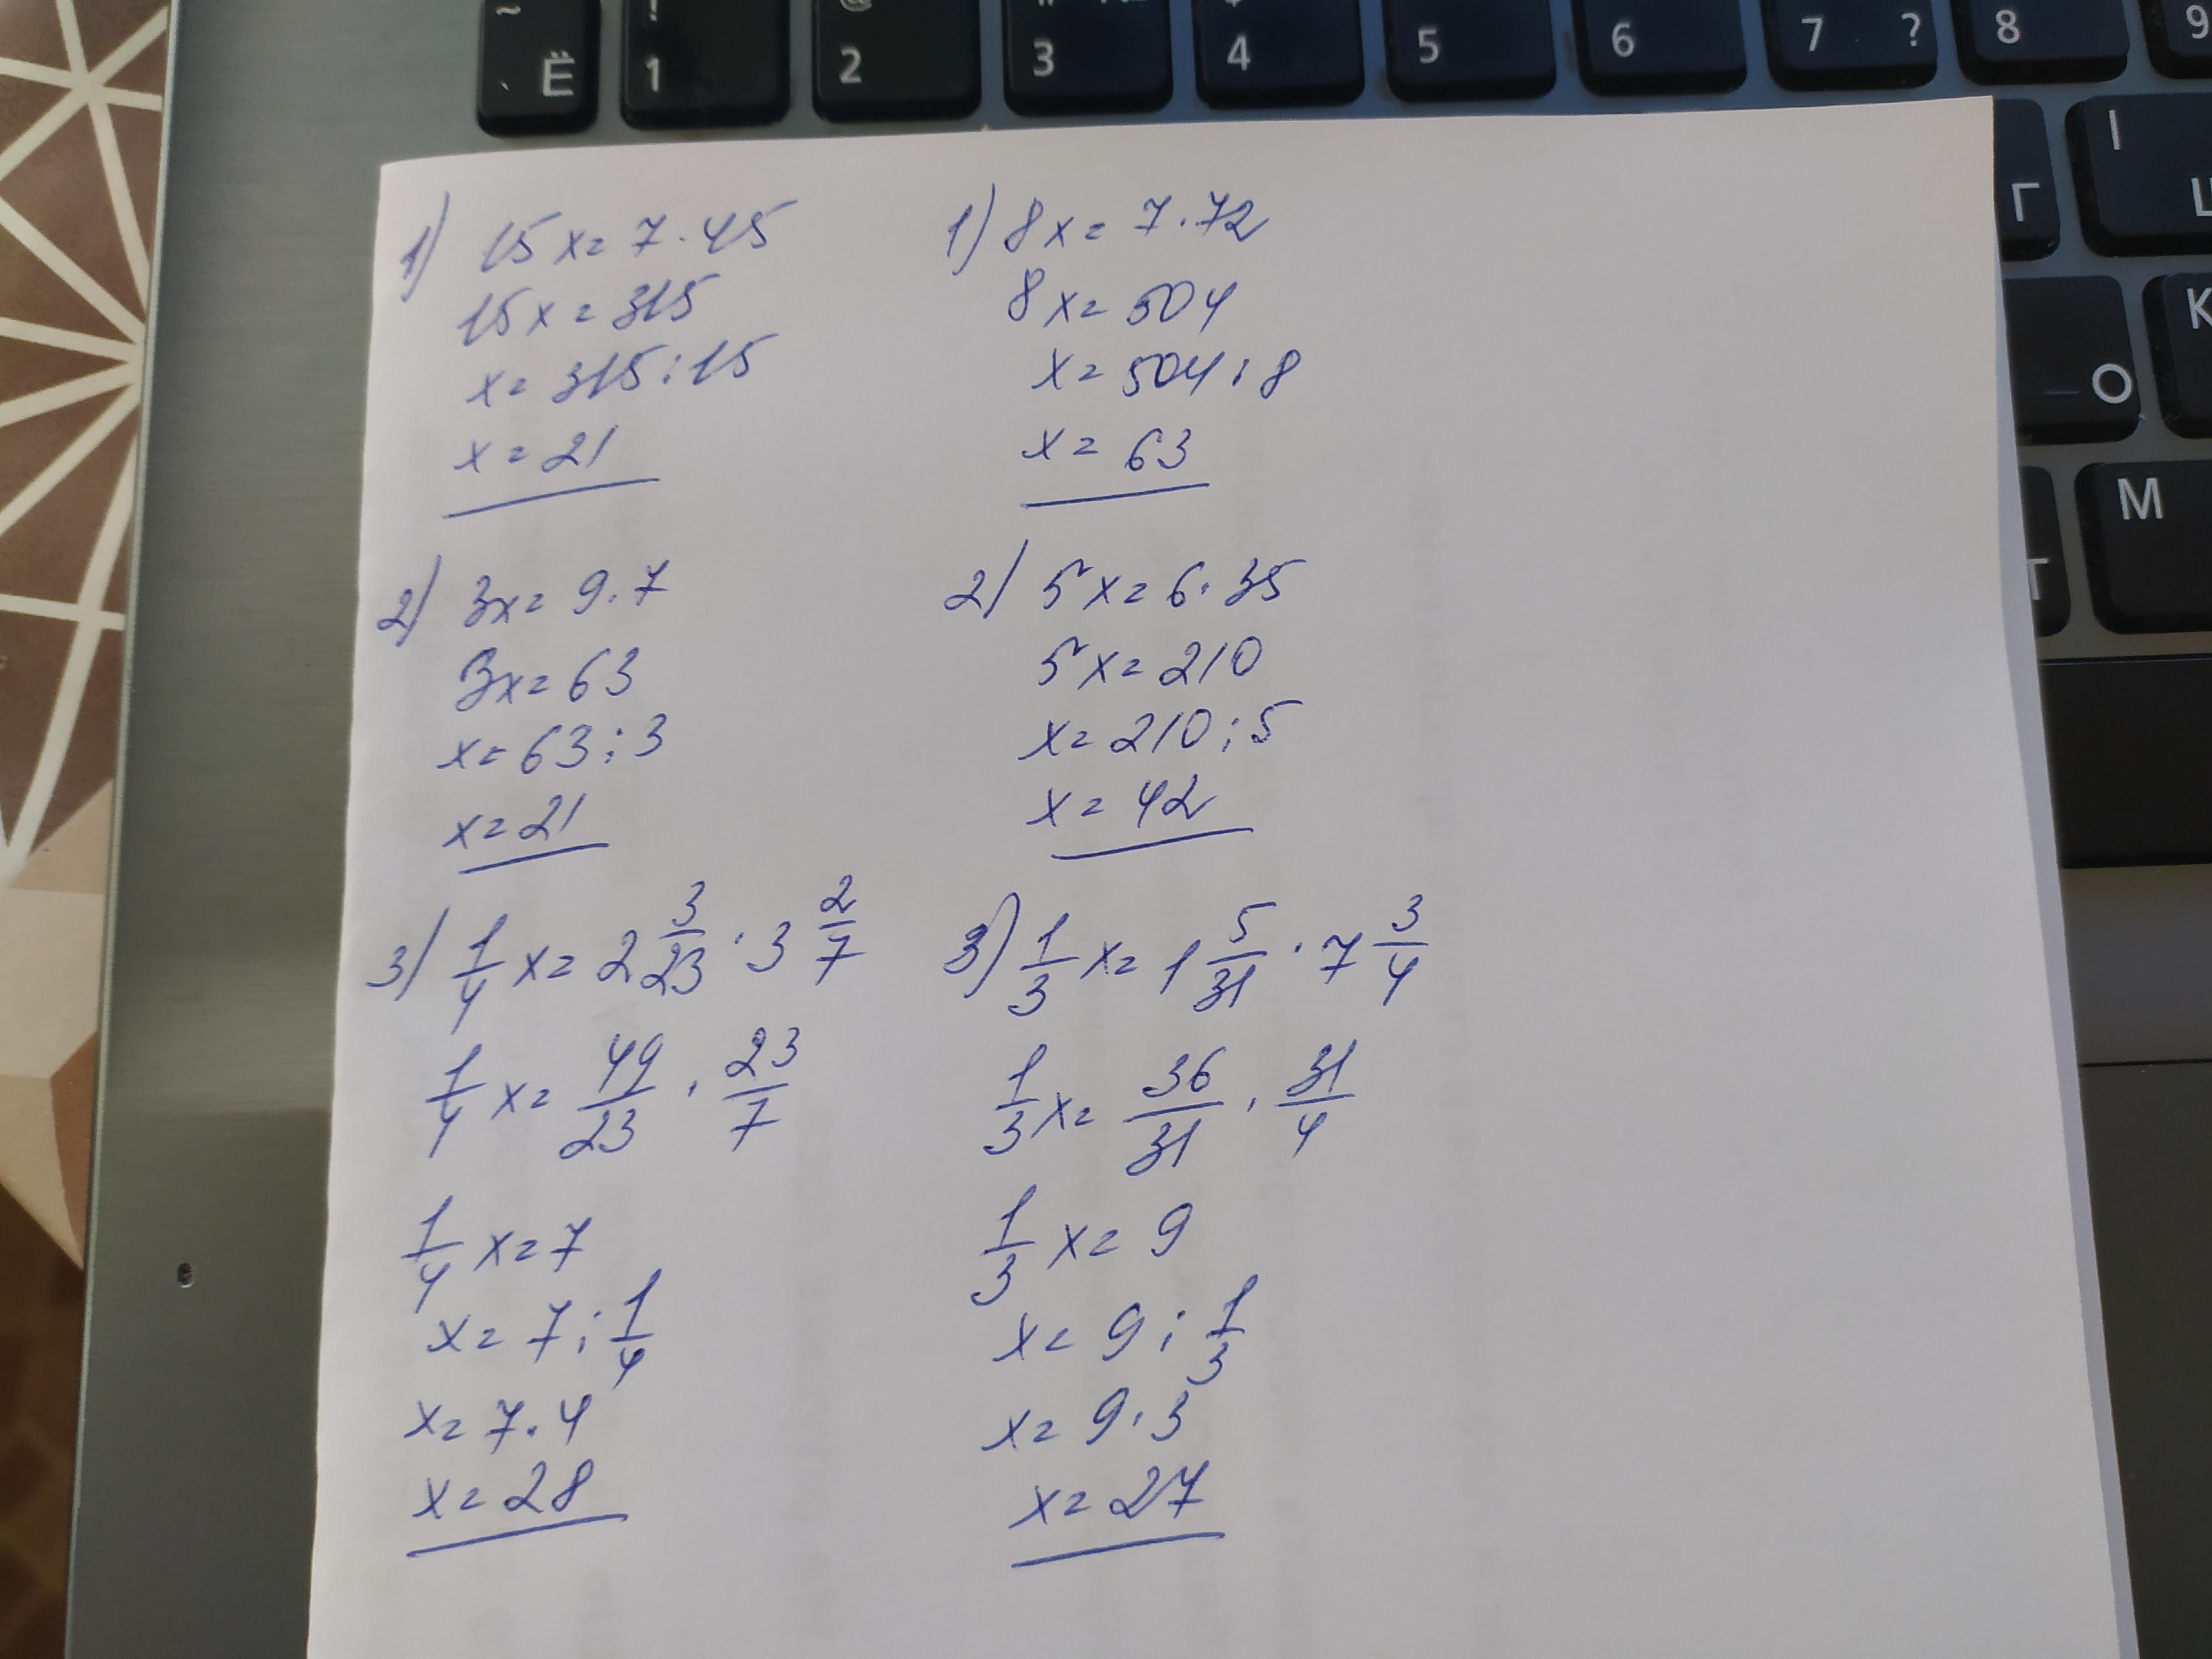 ~ ` Ё
! 1
@ 2
3
4
5
6
7 ?
8
9
Г
І
О
К
М
Т
1) 15x=7·45
15x=315
x=315:15
x=21
2) 3x=9·7
3x=63
x=63:3
x=21
3) 1/4 x=2 3/23 · 3 2/7
1/4 x= 49/23 · 23/7
1/4 x=7
x=7: 1/4
x=7·4
x=28
1) 8x=7·72
8x=504
x=504:8
x=63
2) 5x=6·35
5x=210
x=210:5
x=42
3) 1/3 x=1 5/31 · 7 3/4
1/3 x= 36/31 · 31/4
1/3 x=9
x=9: 1/3
x=9·3
x=27